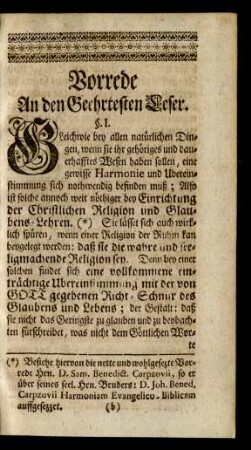 Vorrede
An den Geehrtesten Leser.
§. I.
GLeichwie bey allen natürlichen Din-
gen, wenn sie ihr gehöriges und dau-
erhafftes Wesen haben sollen, eine
gewisse Harmonie und Ubereín-
stimmung sich nothwendig befinden muß; Also
ist solche annoch weit nöthiger bey Einrichtung
der Christlichen Religion und Glau-
bens-Lehren. (*) Sie lässet sich auch würck-
lich spüren, wenn einer Religion der Ruhm kan
beygelegt werden: daß sie die wahre und see-
ligmachende Religion sey. Denn bey einer
solchen findet sich eine vollkommene ein-
trächtige Ubereinstimmung mit der von
GOTT gegebenen Richt-Schnur des
Glaubens und Lebens; der Gestalt: daß
sie nicht das Geringste zu glauben und zu beobach-
ten fürschreibet, was nicht dem Göttlichen Wor-
te
(*) Besiehe hiervon die nette und wohlgesetzte Vor-
rede Hrn. D. Sam. Benedict. Carpzovii, so er
über seines seel. Hrn. Bruders: D. Joh. Bened.
Carpzovii Harmoniam Evangelico-Biblicam
auffgesetzet.
(b)